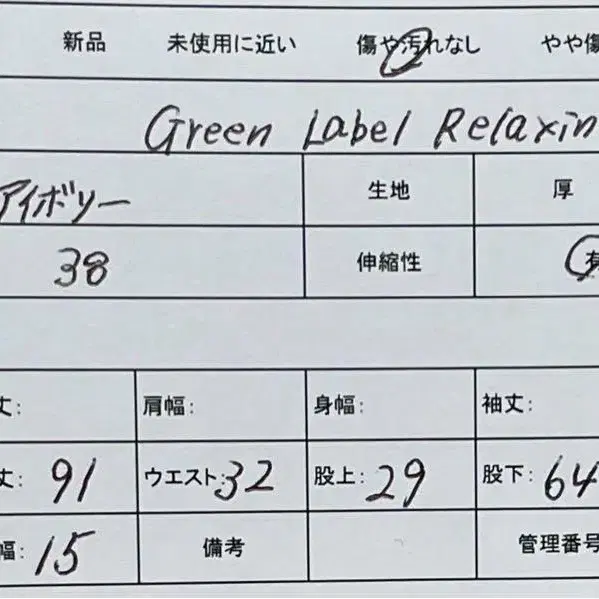 新品 未使用に近い 傷や汚れなし やや傷
Green Label Relaxin
アイボリー 生地 厚
38 伸縮性 有
丈: 肩幅: 身幅: 袖丈:
丈: 91 ウエスト: 32 股上: 29 股下: 64
幅: 15 備考 管理番号